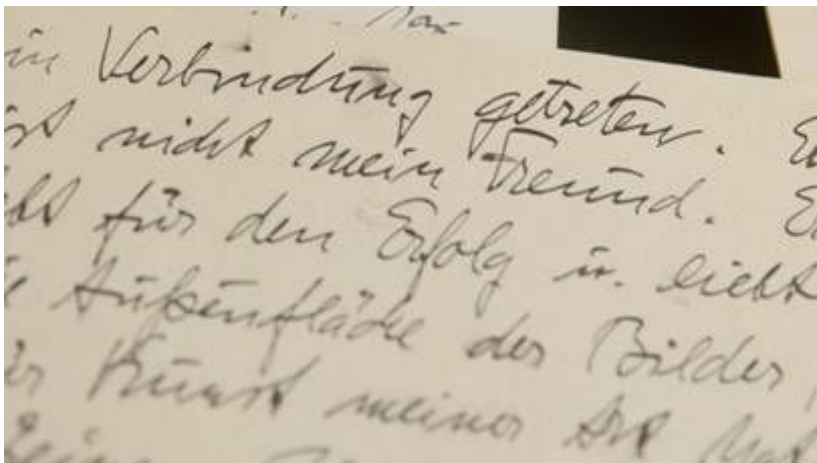 in Verbindung getreten. E
ist nicht mein Freund. E
ebt für den Erfolg u. liebt
e Außenfläche der Bilder,
er Kunst meiner Art hat